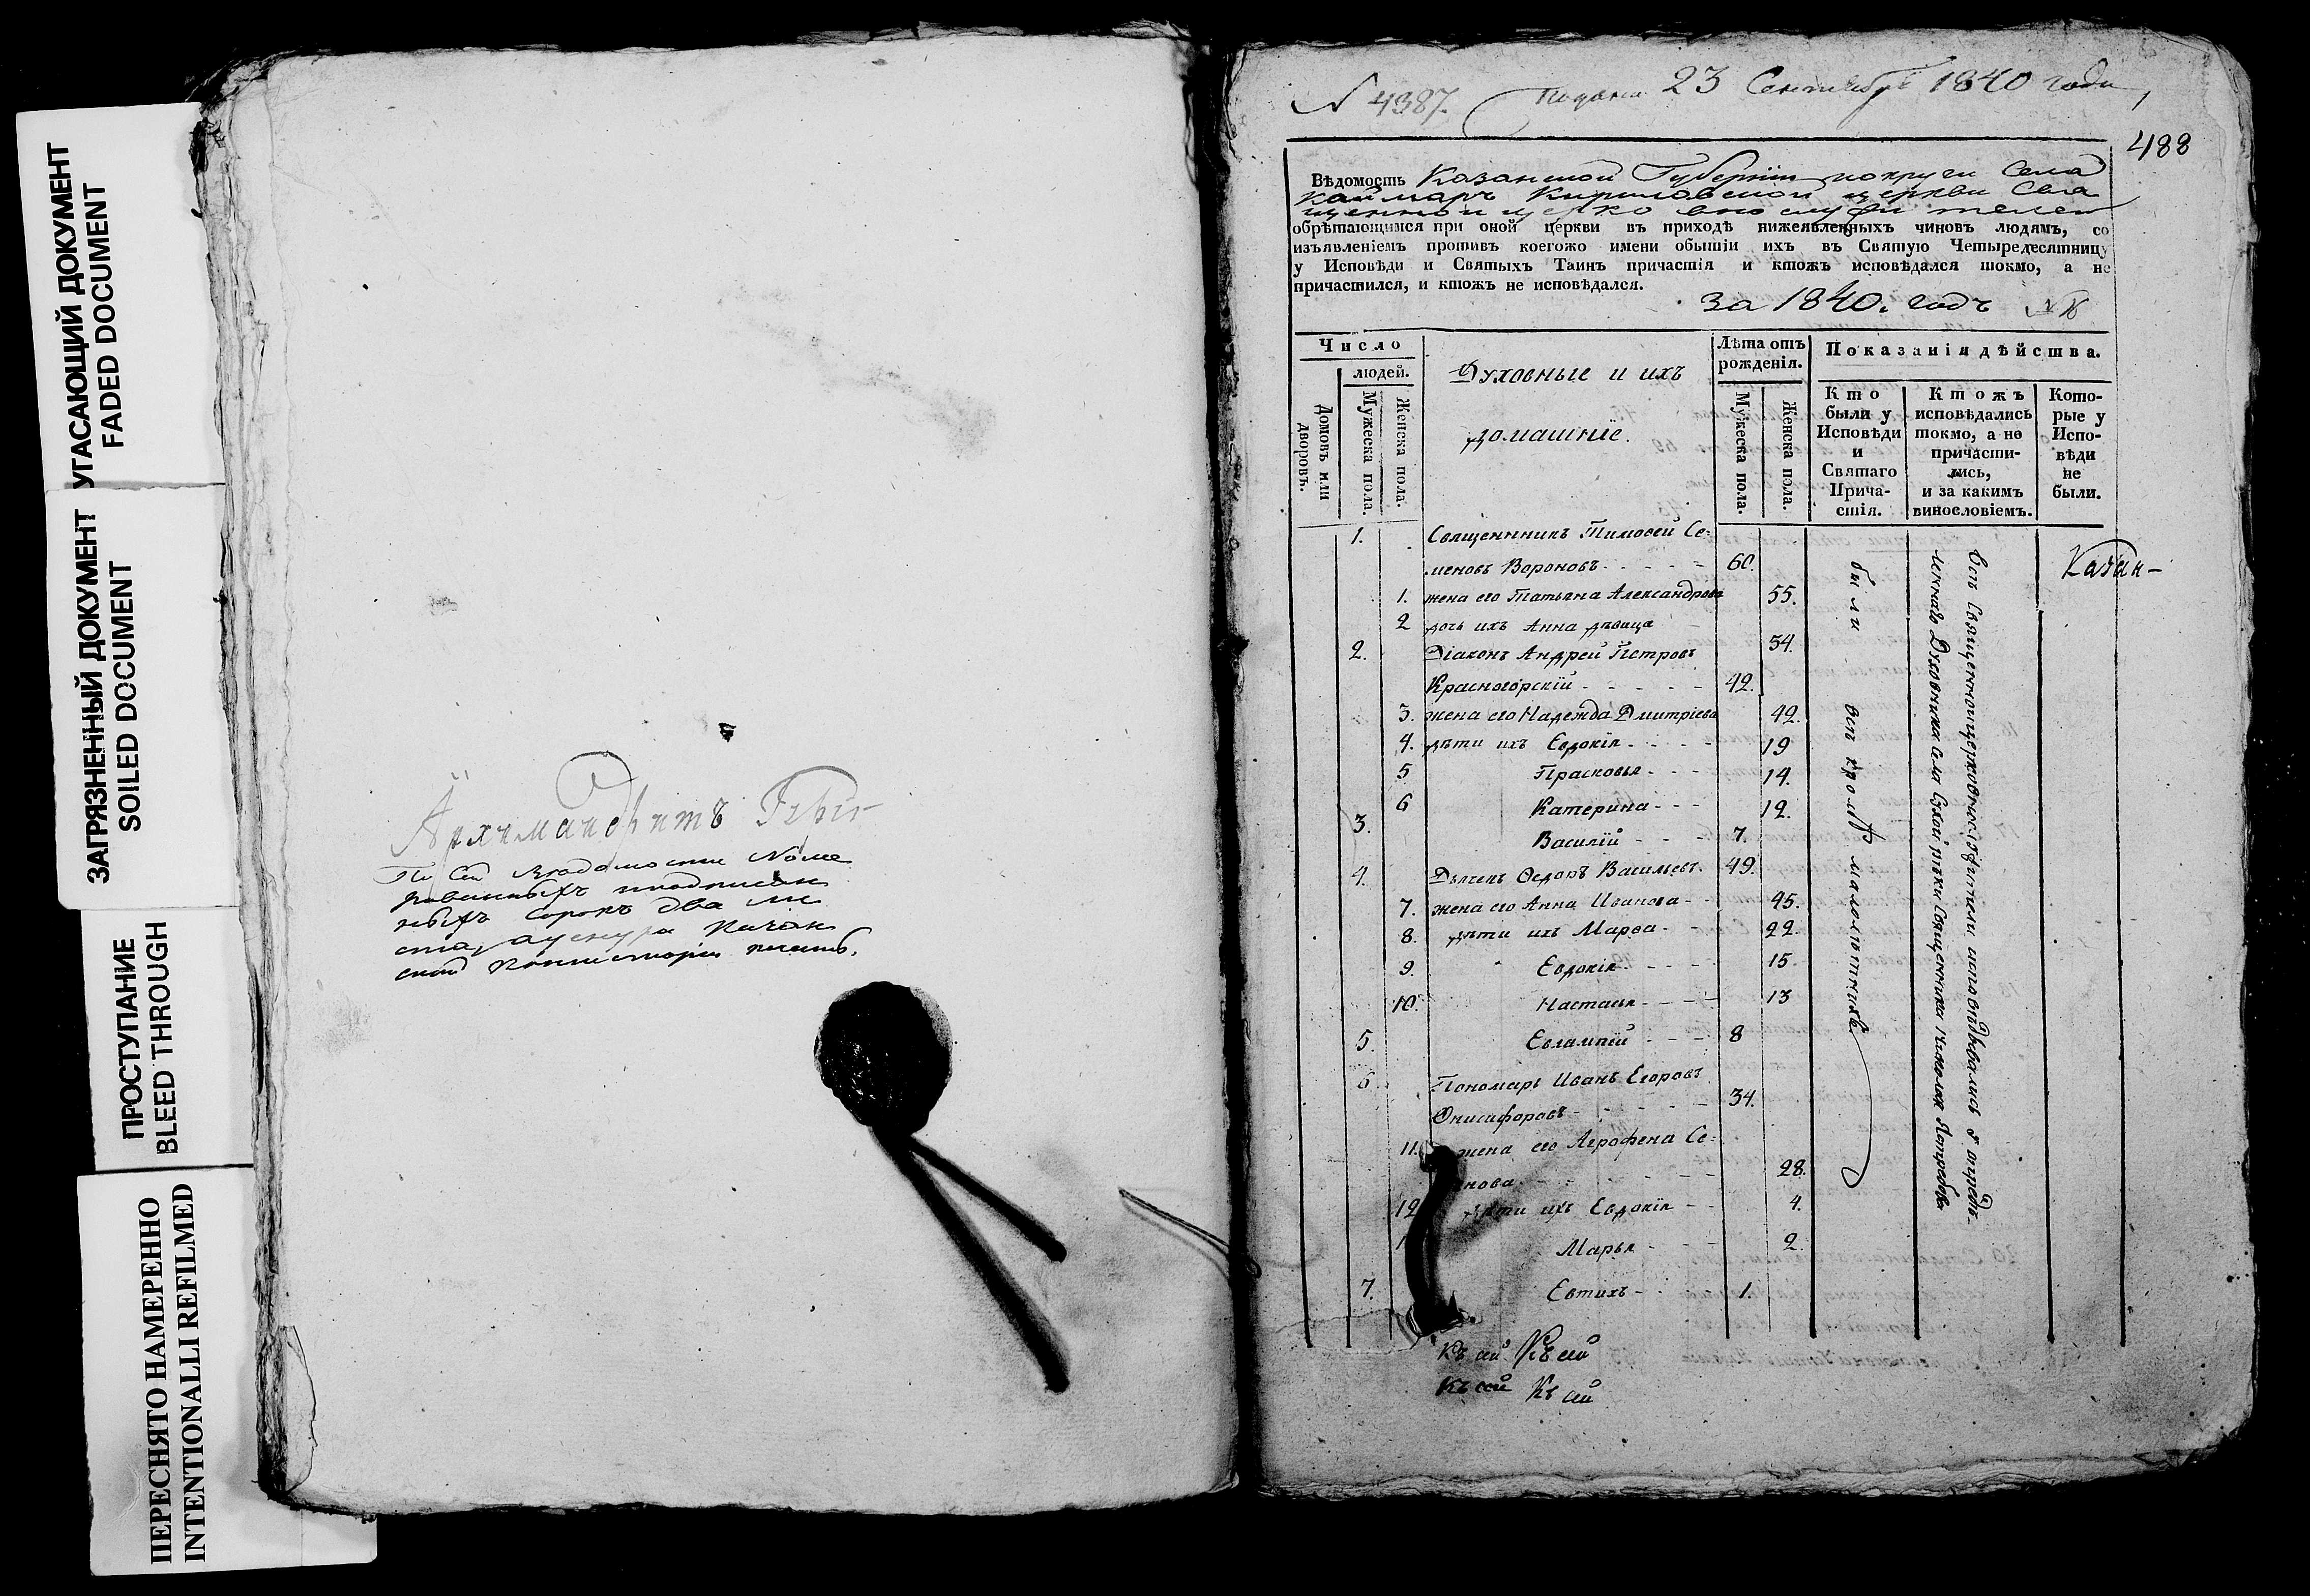 УГАСАЮЩИЙ ДОКУМЕНТ
FADED DOCUMENT
ЗАГРЯЗНЕННЫЙ ДОКУМЕНТ
SOILED DOCUMENT
ПРОСТУПАНИЕ
BLEED THROUGH
ПЕРЕСНЯТО НАМЕРЕННО
INTENTIONALLI REFILMED
Архимандритъ
По сей Ведомости Номе
рованныхъ
ныхъ сорокъ два ли
ста
N 4387.
Подана 23 Сентября 1840 года
488
Вѣдомость Казанской Губерніи округи Села
Каймаръ Кириловской церкви Свя
щенно и церковно служителей
обрѣтающимся при оной церкви въ приходѣ нижеявленныхъ чиновъ людямъ, со
изъявленіемъ противъ коегожо имени обытіи ихъ въ Святую Четыредесятницу
у Исповѣди и Святыхъ Таинъ причастія и ктожъ исповѣдался токмо, а не
причастился, и ктожъ не исповѣдался.
за 1840. годъ
Число
людей.
Домовъ или дворовъ.
Мужеска пола.
Женска пола.
Духовные и ихъ
домашніе.
Лѣта отъ
рожденія.
Мужеска пола.
Женска пола.
Показанія дѣйства.
Кто
были у
Исповѣди
и
Святаго
Прича-
стія.
Ктожъ
исповѣдались
токмо, а не
причасти-
лись,
и за какимъ
винословіемъ.
Кото-
рые у
Испо-
вѣди
не
были.
1. Священникъ Тимоѳей Се-
меновъ Вороновъ 60.
1. жена его Татьяна Александрова 55.
2 дочь ихъ Анна дѣвица 34.
2. Діаконъ Андрей Петровъ
Красногорскій 42.
3. жена его Надежда Дмитріева 42.
4. дѣти ихъ Евдокія 19
5 Прасковья 14.
6 Катерина 12.
3. Василій 7.
4. Дьячекъ Ѳедоръ Васильевъ 49.
7. жена его Анна Иванова 45.
8. дѣти ихъ Марѳа 22.
9. Евдокія 15.
10. Настасья 13
5. Евлампій 8
6 Пономарь Иванъ Егоровъ
Онисифоровъ 34.
11. жена его Агрофена Се-
нова 28.
12 дѣти ихъ Евдокія 4.
Марья 2.
7. Евтихъ 1.
были всѣ кромѣ малолѣтнихъ
Всѣ Священноцерковнослужители исповѣдывались у опредѣ-
леннаго Духовника села Сухой рѣки Священника Николая
Казан-
Къ сей Къ сей
Къ сей Къ сей